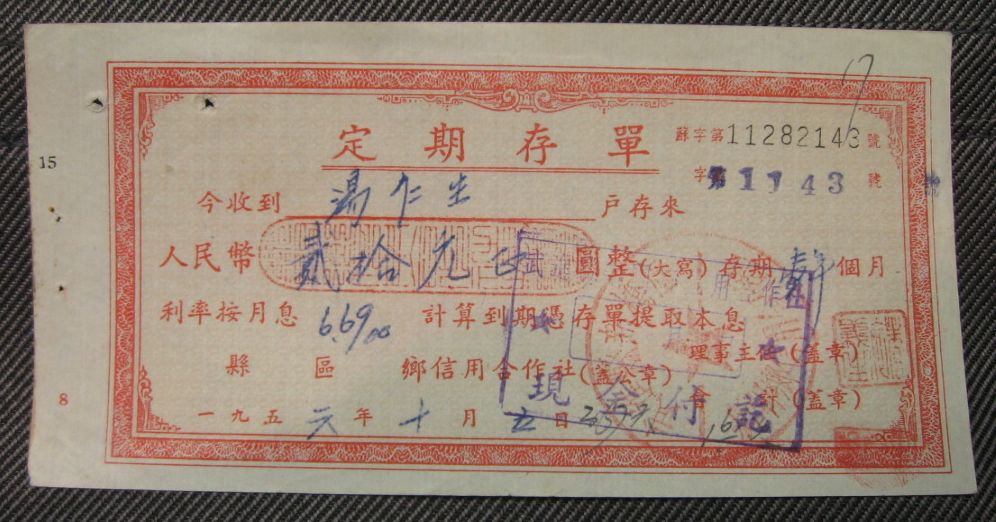 定期存單
蘇字第11282143號
字第 1143 號
15
今收到 湯仁生 戶存來
人民幣 貳拾元正 圓整(大寫)存期 個月
利率按月息 6.69 計算到期憑存單提取本息
理事主任(蓋章)
縣 區 鄉信用合作社(蓋公章)
會計(蓋章)
8
一九五六年十月五日
現金付訖